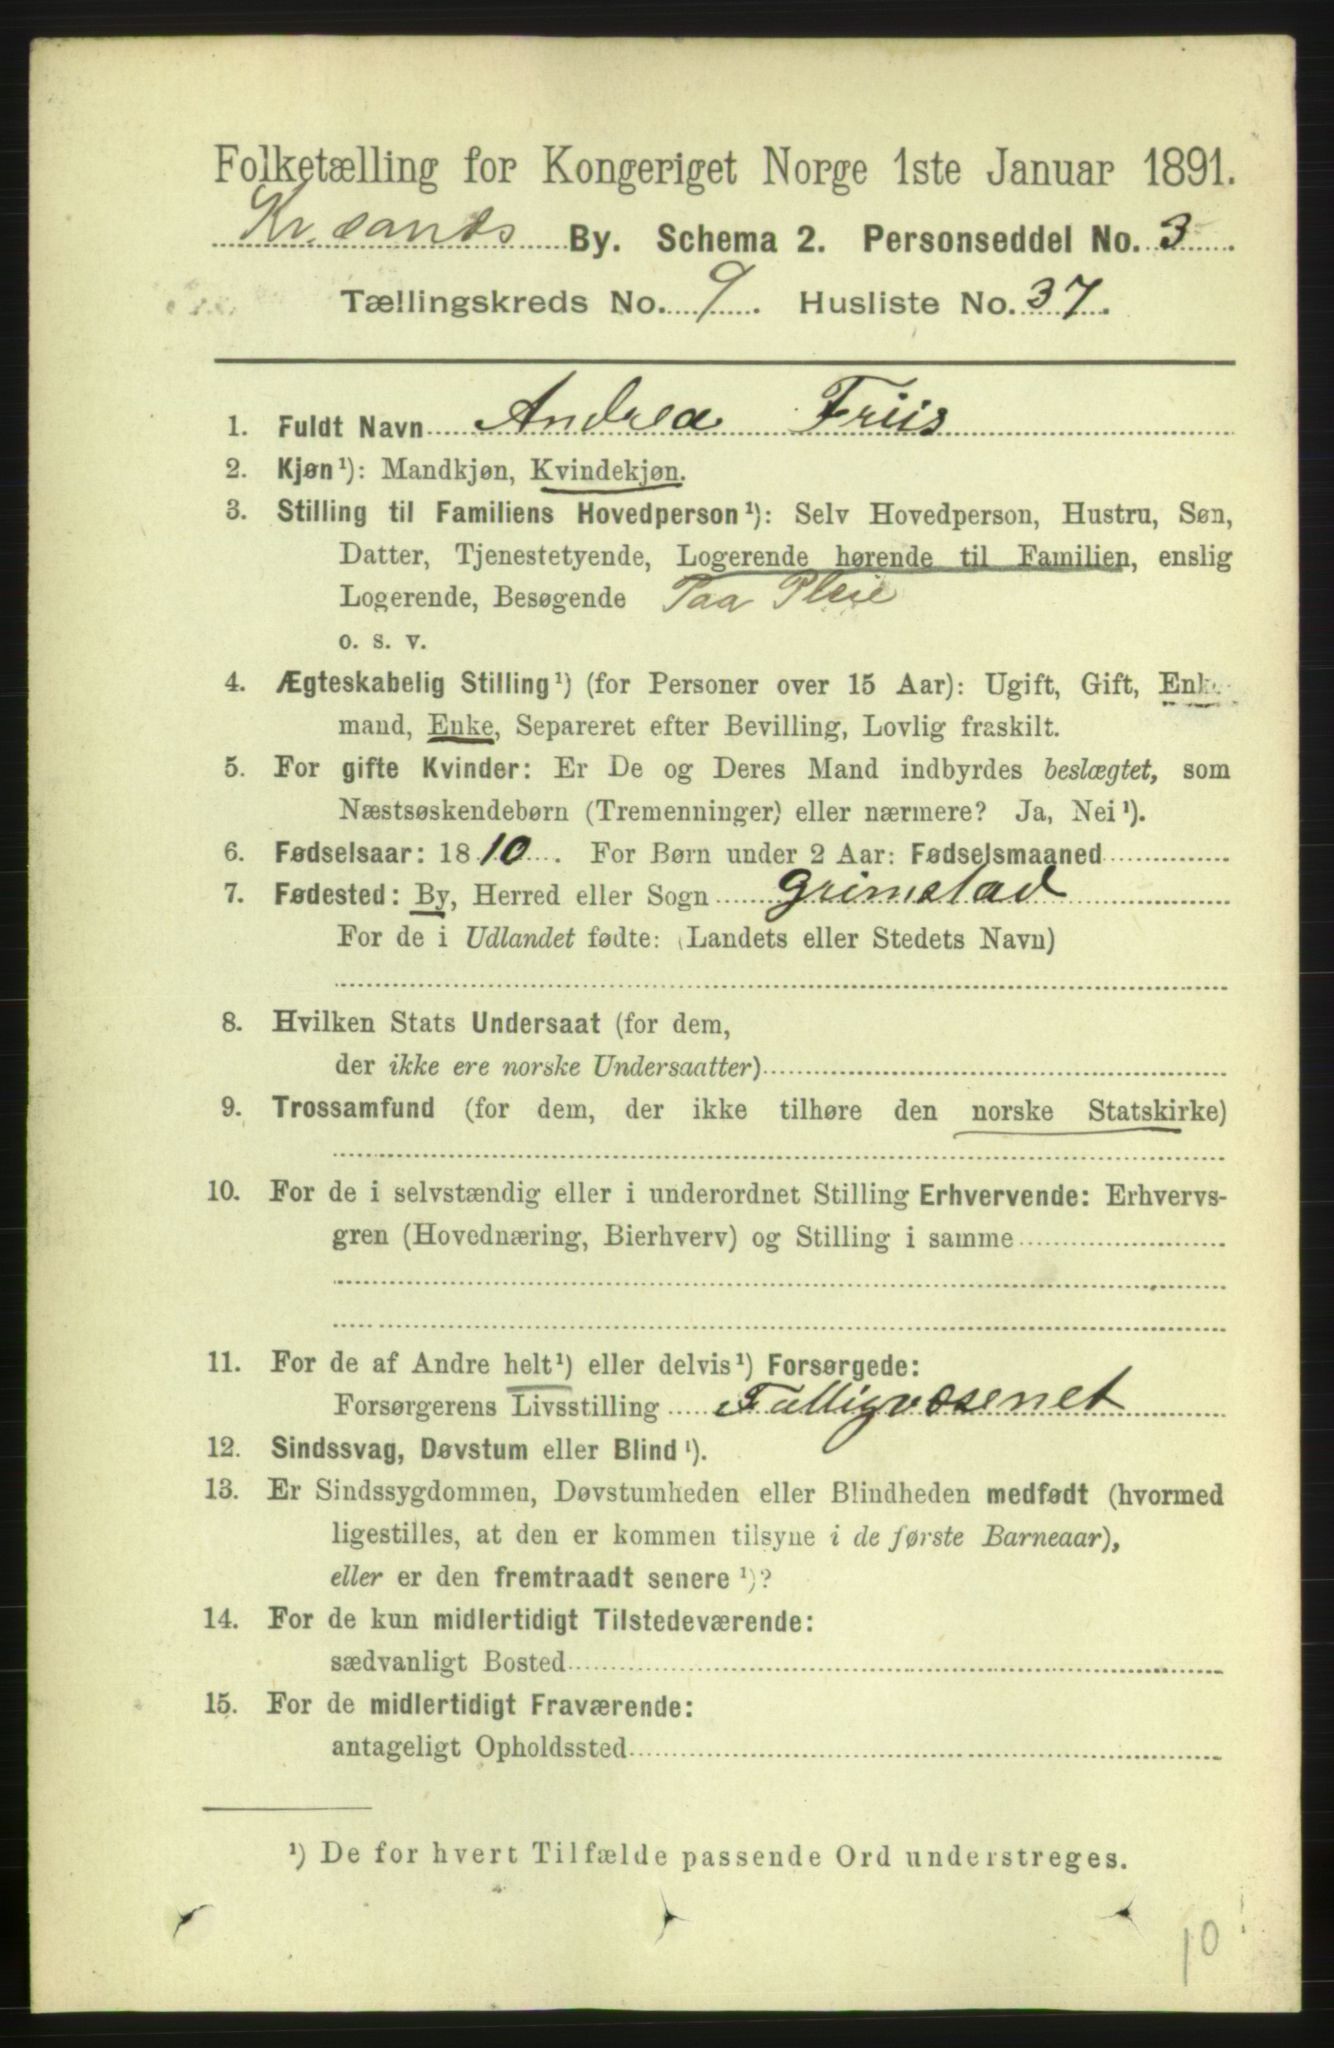 Folketælling for Kongeriget Norge 1ste Januar 1891.
Kr.sands By. Schema 2. Personseddel No. 3.
Tællingskreds No. 9. Husliste No. 37.
1. Fuldt Navn Andrea Friis
2. Kjøn¹): Mandkjøn, Kvindekjøn.
3. Stilling til Familiens Hovedperson¹): Selv Hovedperson, Hustru, Søn,
Datter, Tjenestetyende, Logerende hørende til Familien, enslig
Logerende, Besøgende Paa Pleie
o. s. v.
4. Ægteskabelig Stilling¹) (for Personer over 15 Aar): Ugift, Gift, Enke-
mand, Enke, Separeret efter Bevilling, Lovlig fraskilt.
5. For gifte Kvinder: Er De og Deres Mand indbyrdes beslægtet, som
Næstsøskendebørn (Tremenninger) eller nærmere? Ja, Nei¹).
6. Fødselsaar: 1810. For Børn under 2 Aar: Fødselsmaaned
7. Fødested: By, Herred eller Sogn Grimstad
For de i Udlandet fødte: (Landets eller Stedets Navn)
8. Hvilken Stats Undersaat (for dem,
der ikke ere norske Undersaatter)
9. Trossamfund (for dem, der ikke tilhøre den norske Statskirke)
10. For de i selvstændig eller i underordnet Stilling Erhvervende: Erhvervs-
gren (Hovednæring, Bierhverv) og Stilling i samme
11. For de af Andre helt¹) eller delvis¹) Forsørgede:
Forsørgerens Livsstilling Fattigvæsenet
12. Sindssvag, Døvstum eller Blind¹).
13. Er Sindssygdommen, Døvstumheden eller Blindheden medfødt (hvormed
ligestilles, at den er kommen tilsyne i de første Barneaar),
eller er den fremtraadt senere¹)?
14. For de kun midlertidigt Tilstedeværende:
sædvanligt Bosted
15. For de midlertidigt Fraværende:
antageligt Opholdssted
¹) De for hvert Tilfælde passende Ord understreges.
10